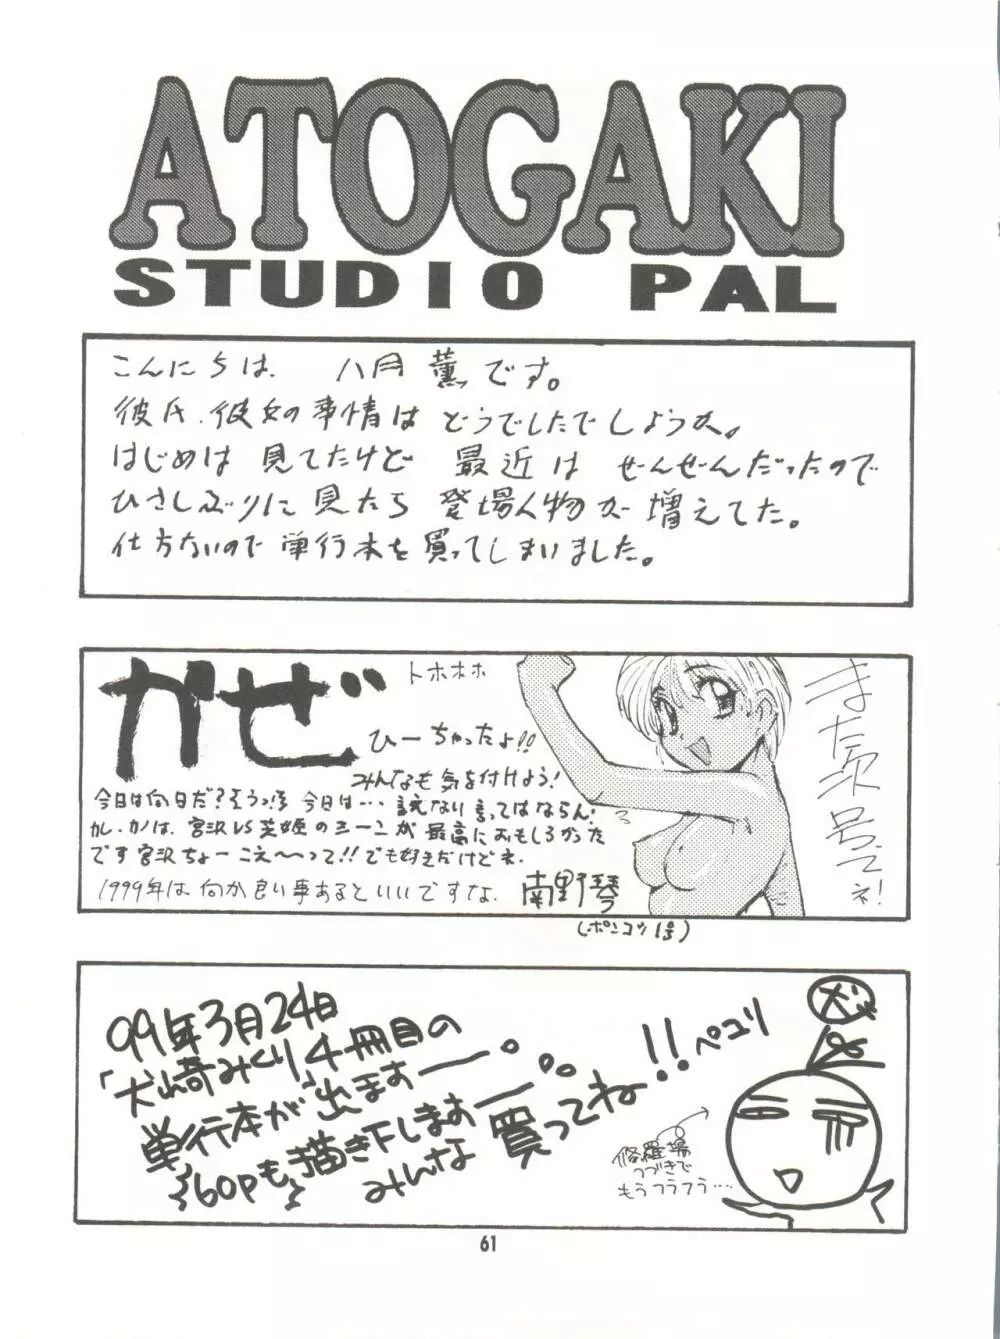 ATOGAKI
STUDIO PAL
こんにちは、八月 薫です。
彼氏、彼女の事情はどうでしたでしょうか。
はじめは見てたけど最近はぜんぜんだったので
ひさしぶりに見たら登場人物が増えてた。
仕方ないので単行本を買ってしまいました。
かぜ
トホホホ
ひーちゃったよ!!
みんなも気を付けよう!
今日は何日だ?そうっ!今日は…
言ってはならん!
カレ・カノは、宮沢VS芝姫のシーンが最高におもしろかった
です宮沢ちょーこえ〜って!!でも好きだけどネ.
1999年は何か良い事あるといいですな.
南野琴
(ポンコツ1号)
また次号でネ!
99年3月24日
「犬崎みくり」4冊目の
単行本が出ますー。
60pも描き下しますー。。
みんな買ってね!!ペコリ
犬
修羅場
つづきで
もうフラフラ…
61